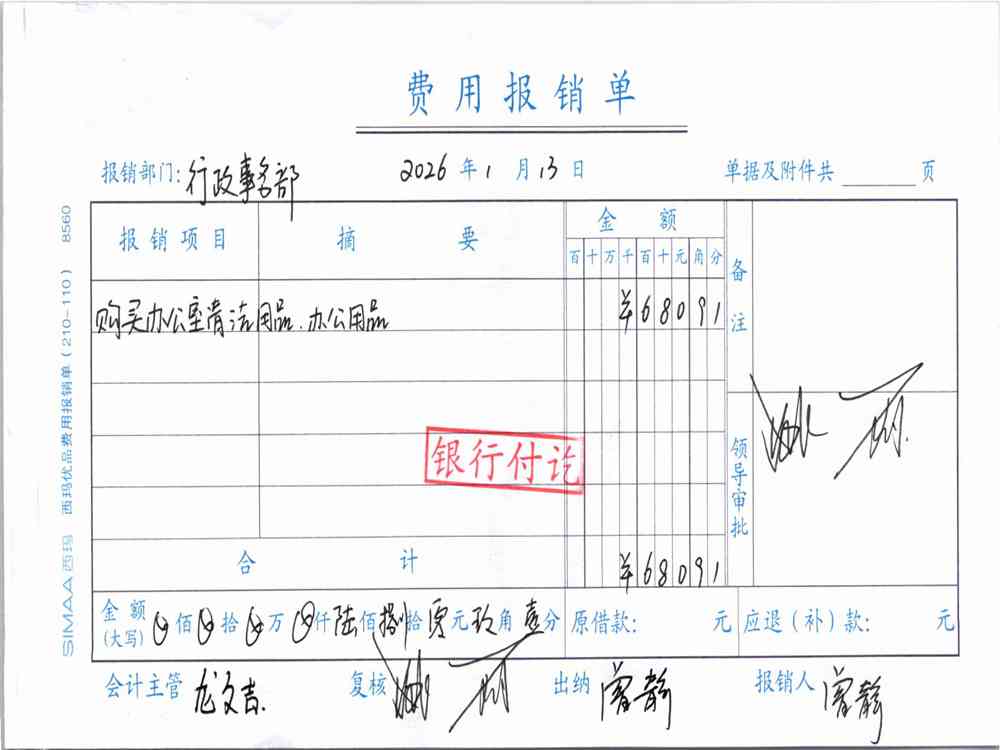 费用报销单
报销部门:行政事务部 2026年1月13日 单据及附件共 页
报销项目 摘要 金额 备注
百十万千百十元角分
购买办公室清洁用品、办公用品 ¥68091
银行付讫
领导审批
合计 ¥68091
金额(大写) 佰 拾 万 仟陆佰捌拾零元玖角壹分 原借款: 元 应退(补)款: 元
会计主管 龙文吉 复核 出纳 曾静 报销人 曾静
SIMAA西玛 西玛优品费用报销单(210-110) 8560